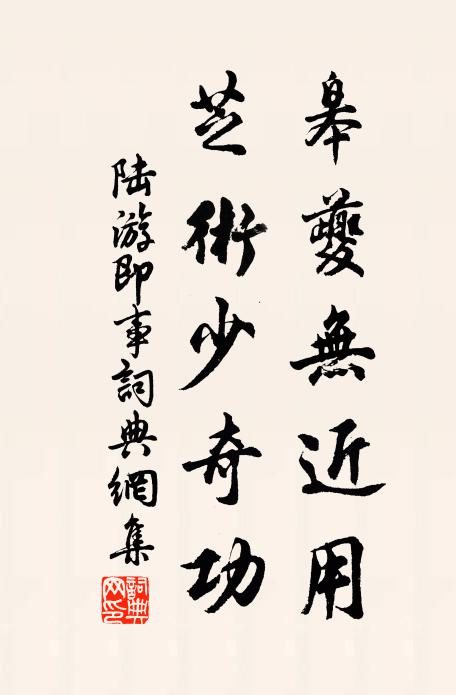 皋夔無近用
芝術少奇功
陸游即事詞典網集
詞典網印